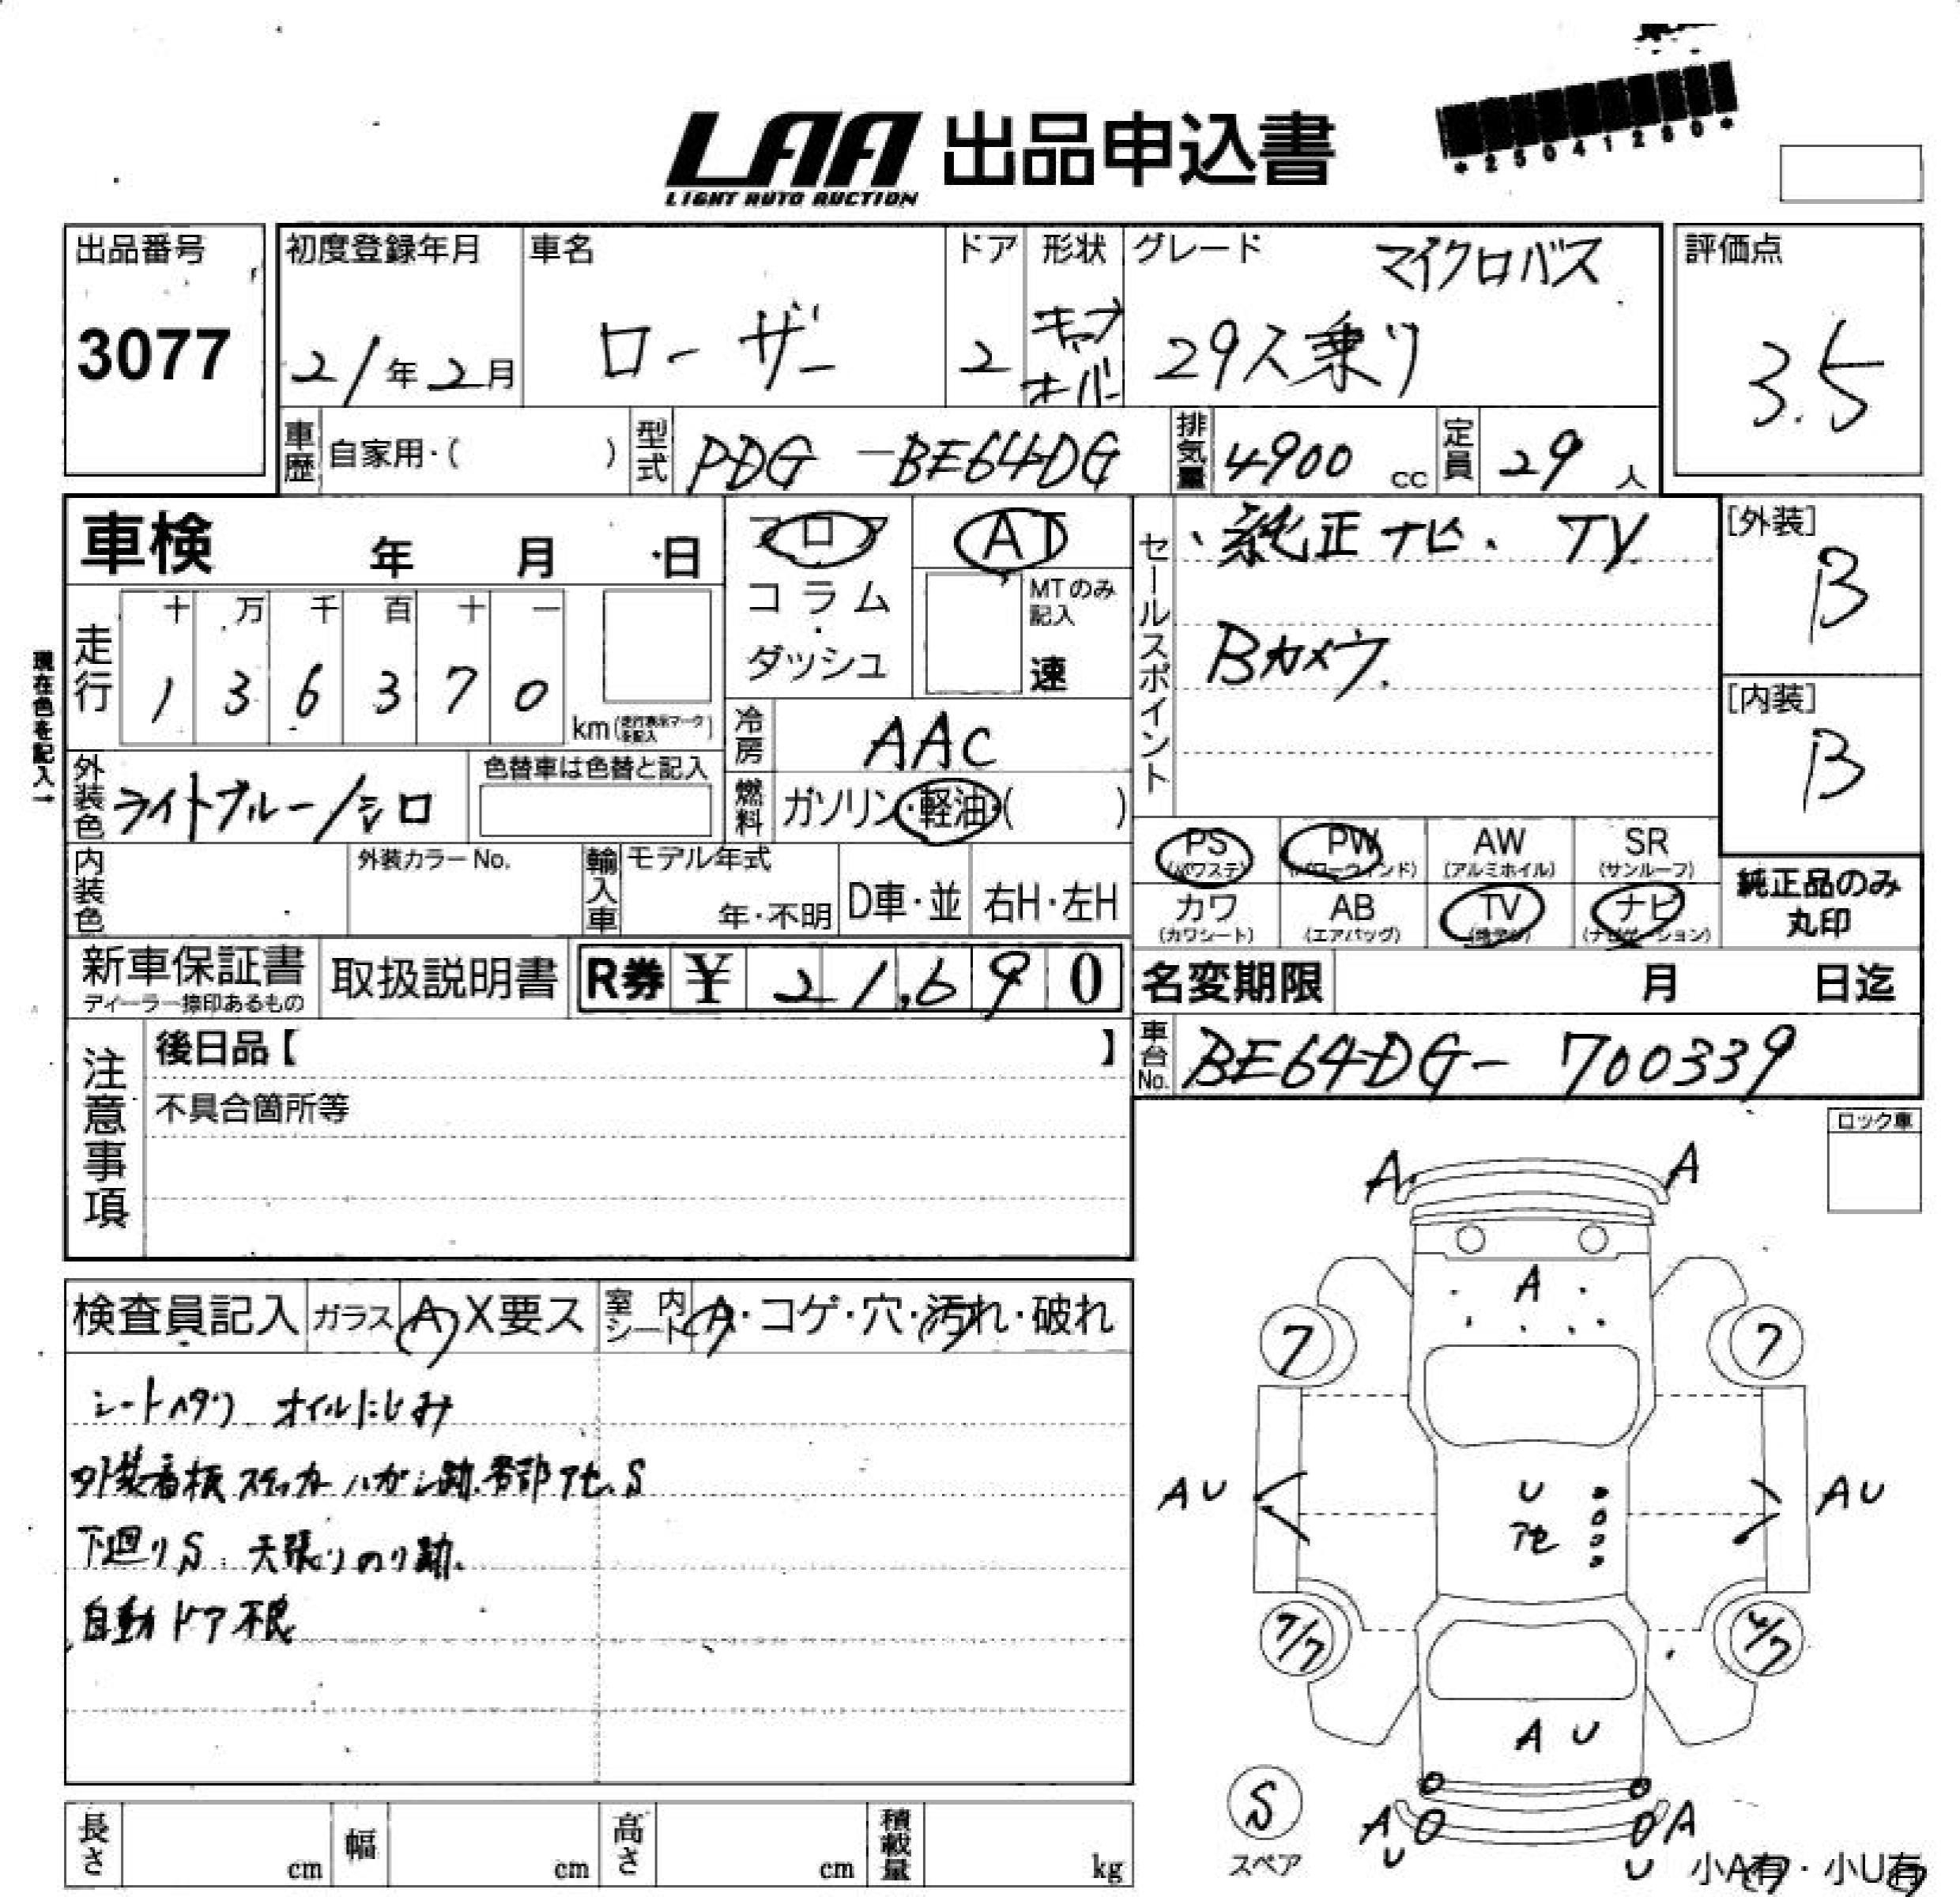 LAA 出品申込書
LIGHT AUTO AUCTION
*25041280*
出品番号
3077
初度登録年月
21年2月
車名
ローザー
ドア
2
形状
キャブオーバー
グレード
マイクロバス
29人乗り
評価点
3.5
車歴 自家用・( )
型式 PDG-BE64DG
排気量 4900 cc
定員 29 人
車検 年 月 日
フロア
コラム・ダッシュ
AT
MTのみ記入
速
セールスポイント
純正ナビ. TV
Bカメラ.
[外装]
B
[内装]
B
現在色を記入→
走行
十 万 千 百 十 一
1 3 6 3 7 0
km(走行表示マークを記入)
冷房 AAC
燃料 ガソリン・軽油・( )
外装色 ライトブルー/シロ
色替車は色替と記入
内装色
外装カラーNo.
輸入車 モデル年式
年・不明
D車・並
右H・左H
PS (パワステ)
PW (パワーウィンド)
AW (アルミホイル)
SR (サンルーフ)
カワ (カワシート)
AB (エアバッグ)
TV (地デジ)
ナビ (ナビゲーション)
純正品のみ丸印
新車保証書
ディーラー捺印あるもの
取扱説明書
R券 ¥ 21,690
名変期限 月 日迄
車台No. BE64DG-700339
注意事項
後日品【 】
不具合箇所等
ロック車
検査員記入
ガラス A X要ス
室内シート A・コゲ・穴・汚れ・破れ
シートヘタリ オイルにじみ
外装看板ステッカーハガシ跡.各部アセ.S
下廻りS. 天張りのり跡.
自動ドア不良
A A
A
7 7
AU U AU
アセ
7/7 6/7
A U
S
スペア
A A
U U
小A有・小U有
長さ cm
幅 cm
高さ cm
積載量 kg